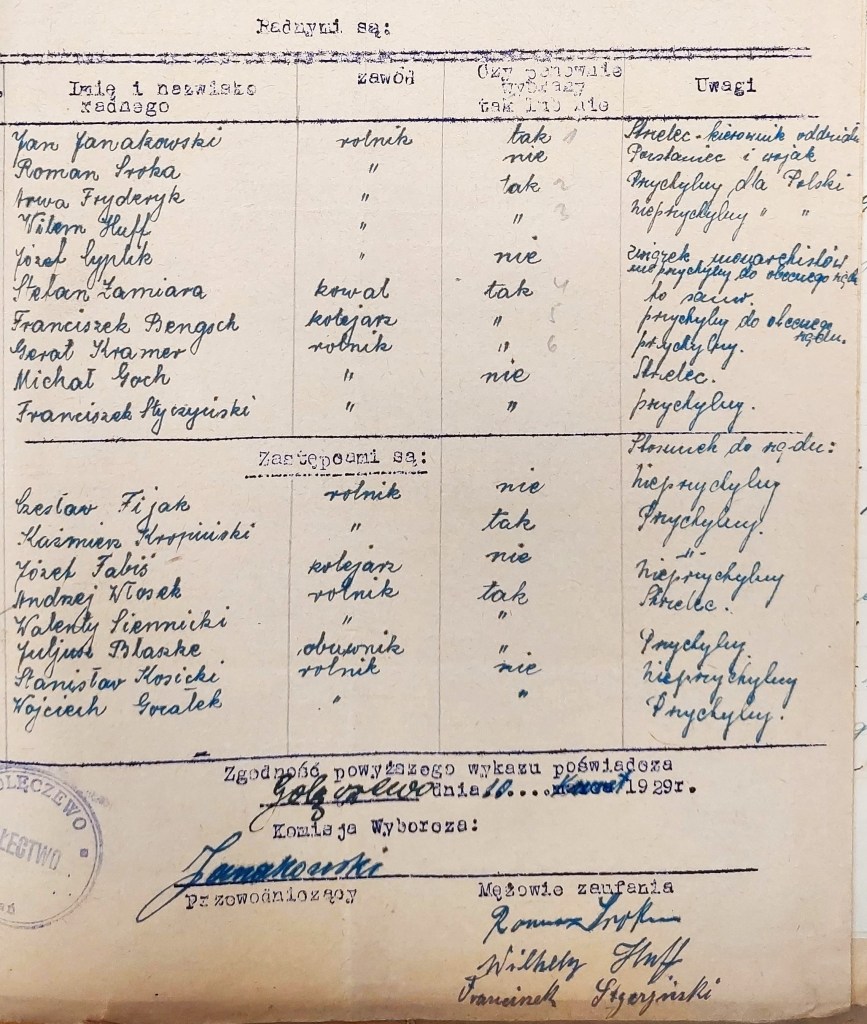 Radnymi są:
Imię i nazwisko radnego zawód Czy ponownie wybrany tak lub nie Uwagi
Jan Janakowski rolnik tak 1 Strzelec - kierownik oddziału
Roman Sroka " nie Powstaniec i wojak
Arwa Fryderyk " tak 2 Przychylny dla Polski
Wilem Huff " " 3 nieprzychylny " "
Józef Cyplik " nie związek monarchistów nieprzychylny do obecnego rządu
Stefan Zamiara kowal tak 4 to samo.
Franciszek Bengsch kolejarz " 5 przychylny do obecnego rządu.
Gerat Kramer rolnik " 6 przychylny.
Michał Goch " nie Strzelec.
Franciszek Styczyński " " przychylny.
Zastępcami są: Stosunek do rządu:
Czesław Fijak rolnik nie Nieprzychylny
Kaźmierz Kropiński " tak Przychylny.
Józef Fabiś kolejarz nie "
Andrzej Włosek rolnik tak Nieprzychylny
Walenty Siennicki " " Strzelec.
Juljusz Blaszke obuwnik " Przychylny
Stanisław Kosicki rolnik nie Nieprzychylny
Wojciech Gorałek " " Przychylny.
Zgodność powyższego wykazu poświadcza
Golęczewo dnia 10.... 1929r.
Komisja Wyborcza:
OŁĘCZEWO
ŁECTWO
Janakowski
Przewodniczący Mężowie zaufania
Roman Sroka
Wilhelm Huff
Franciszek Styczyński